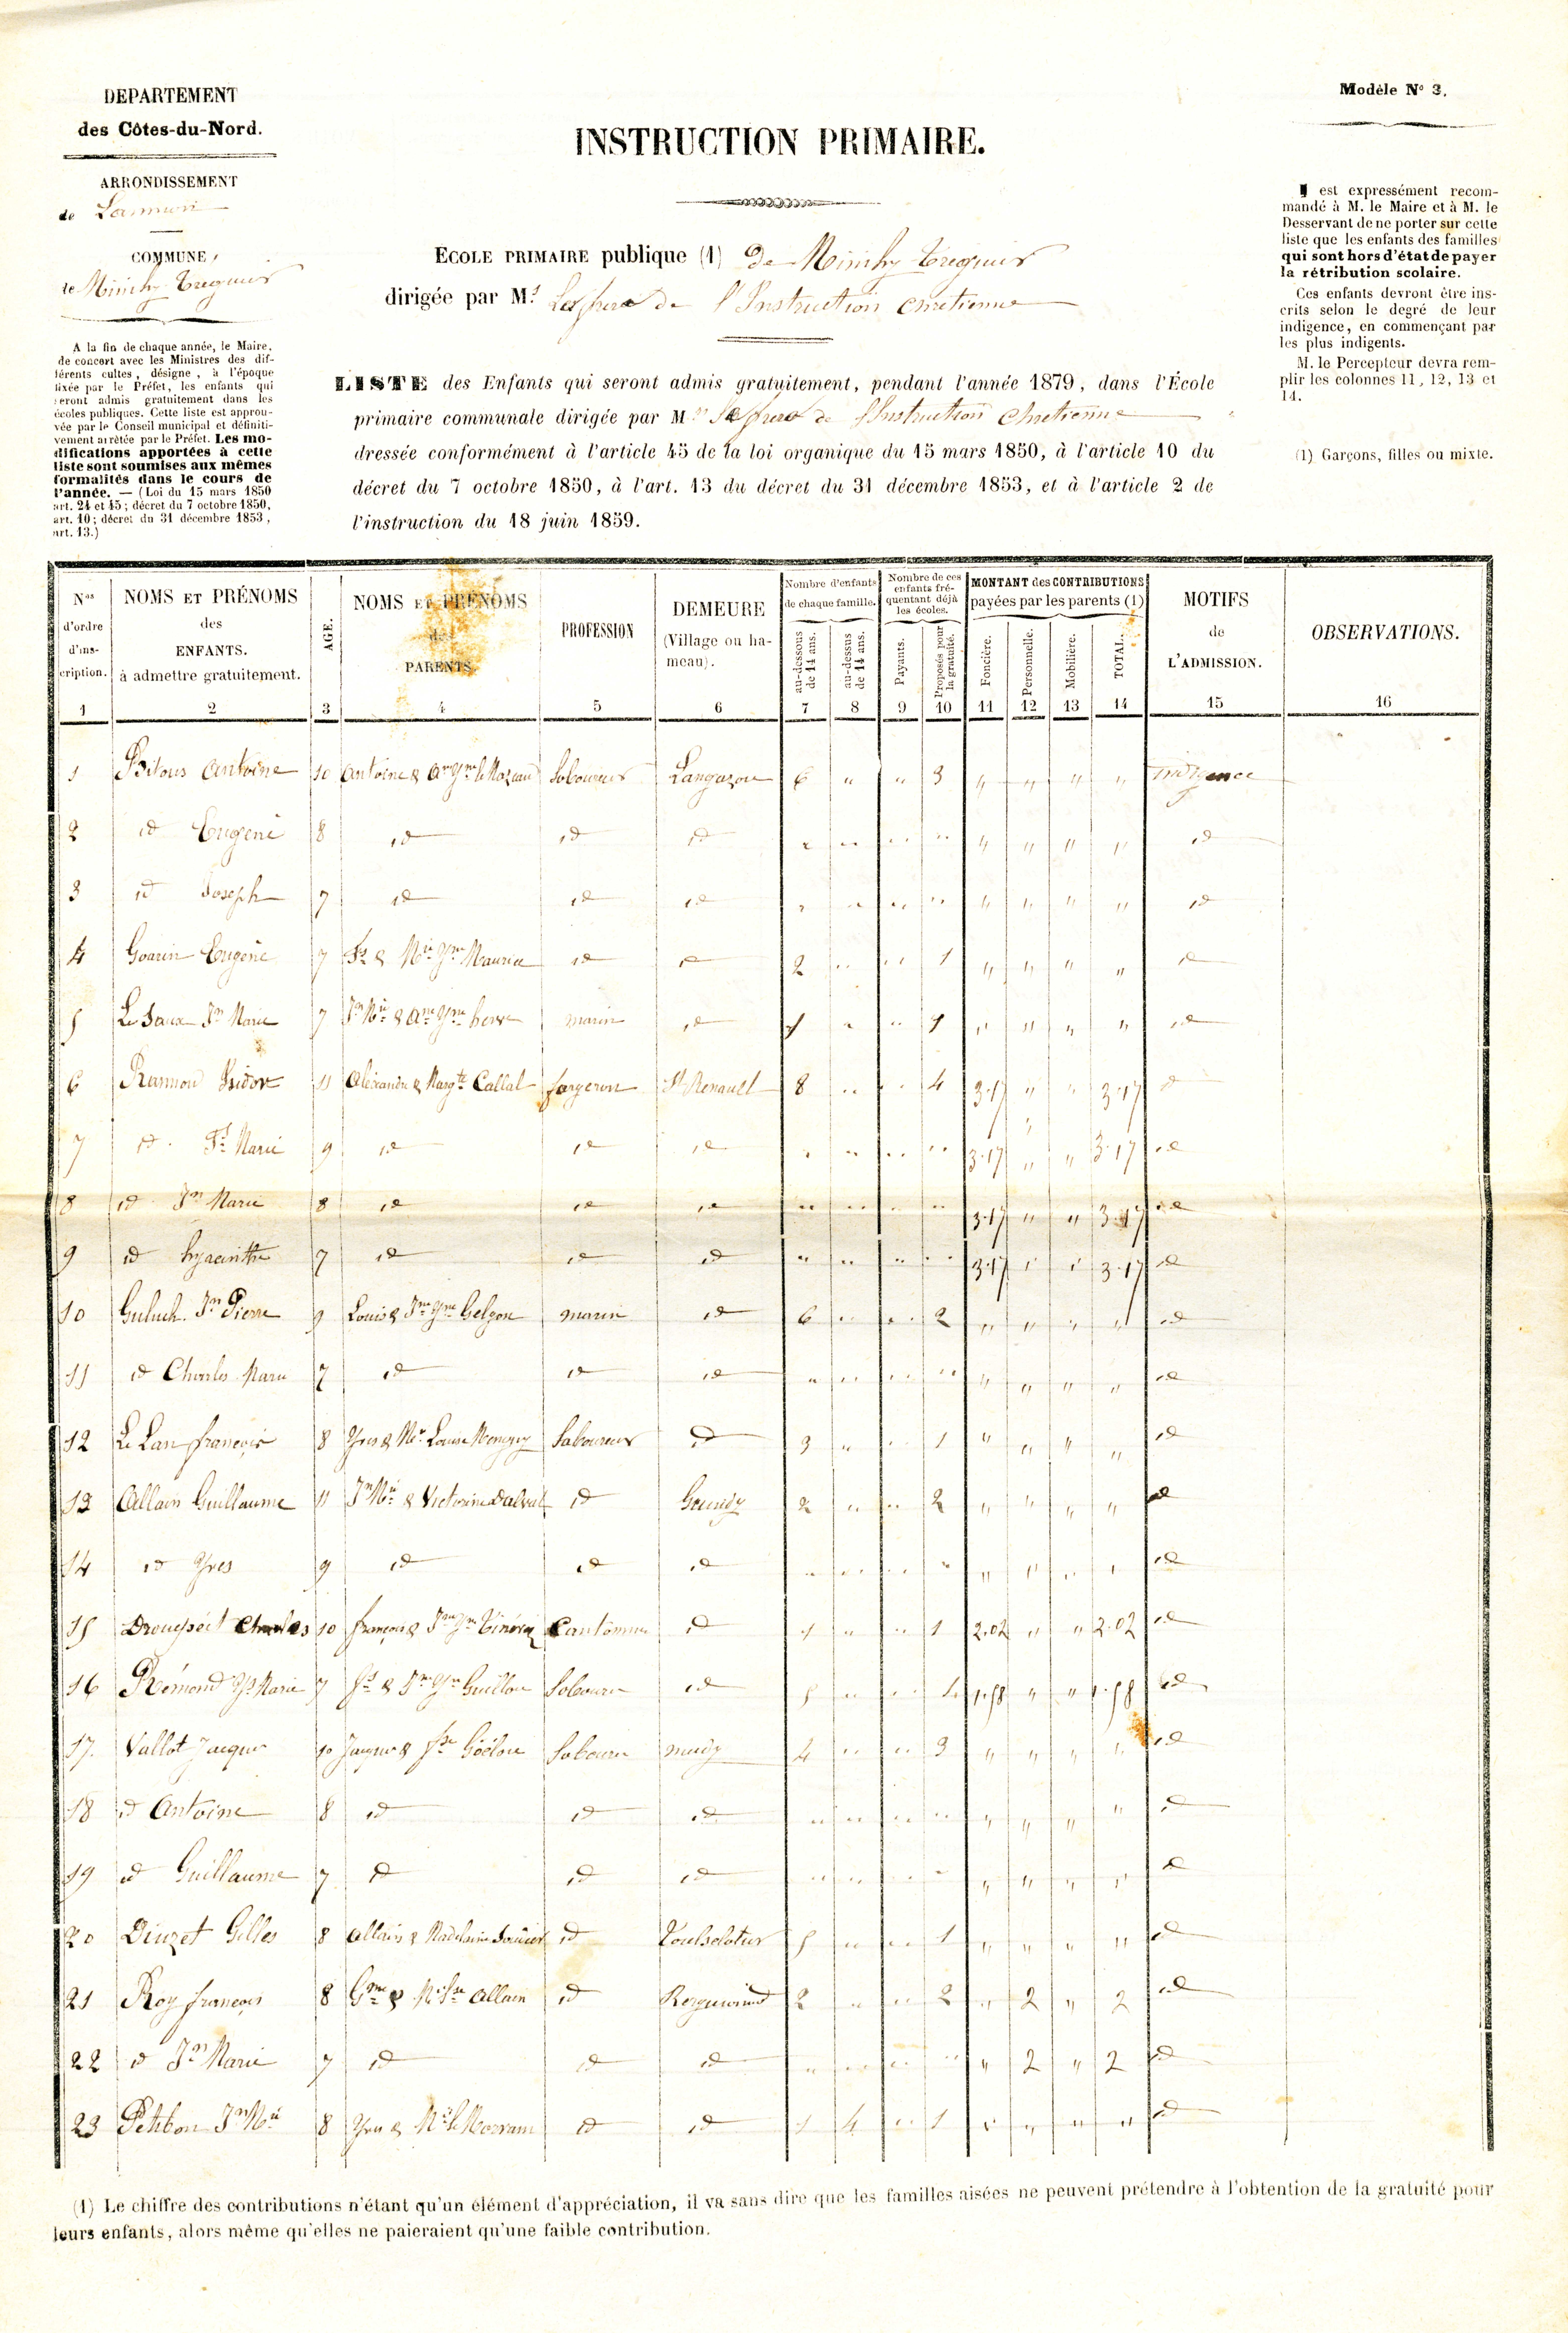 DEPARTEMENT
des Côtes-du-Nord.
ARRONDISSEMENT
de Lannion
COMMUNE
de Minihy-Tréguier
A la fin de chaque année, le Maire,
de concert avec les Ministres des dif-
férents cultes, désigne, à l'époque
fixée par le Préfet, les enfants qui
seront admis gratuitement dans les
écoles publiques. Cette liste est approu-
vée par le Conseil municipal et définiti-
vement arrêtée par le Préfet. Les mo-
difications apportées à cette
liste sont soumises aux mêmes
formalités dans le cours de
l'année. — (Loi du 15 mars 1850
art. 24 et 45; décret du 7 octobre 1850,
art. 10; décret du 31 décembre 1853,
art. 13.)
INSTRUCTION PRIMAIRE.
ECOLE PRIMAIRE publique (1) de Minihy Tréguier
dirigée par Mrs Les frères de l'Instruction chretienne
LISTE des Enfants qui seront admis gratuitement, pendant l'année 1879, dans l'École
primaire communale dirigée par Mrs Les frères de l'Instruction chretienne
dressée conformément à l'article 45 de la loi organique du 15 mars 1850, à l'article 10 du
décret du 7 octobre 1850, à l'art. 13 du décret du 31 décembre 1853, et à l'article 2 de
l'instruction du 18 juin 1859.
Modèle No 3.
Il est expressément recom-
mandé à M. le Maire et à M. le
Desservant de ne porter sur cette
liste que les enfants des familles
qui sont hors d'état de payer
la rétribution scolaire.
Ces enfants devront être ins-
crits selon le degré de leur
indigence, en commençant par
les plus indigents.
M. le Percepteur devra rem-
plir les colonnes 11, 12, 13 et
14.
(1) Garçons, filles ou mixte.
Nos d'ordre d'ins-cription. 1
NOMS ET PRÉNOMS des ENFANTS. à admettre gratuitement. 2
AGE. 3
NOMS ET PRÉNOMS des PARENTS. 4
PROFESSION 5
DEMEURE (Village ou ha-meau). 6
Nombre d'enfants de chaque famille. au-dessous de 14 ans. 7 au-dessus de 14 ans. 8
Nombre de ces enfants fré-quentant déjà les écoles. Payants. 9 Proposés pour la gratuité. 10
MONTANT des CONTRIBUTIONS payées par les parents (1) Foncière. 11 Personnelle. 12 Mobilière. 13 TOTAL. 14
MOTIFS de L'ADMISSION. 15
OBSERVATIONS. 16
1 Antoine 10 Antoine & Laboureur Langazou 6 " " 3 " " " " Indigence
2 id Eugène 8 id id id " " " " " " " " id
3 id Joseph 7 id id id " " " " " " " " id
4 Goarin Eugène 7 Fs & Mie Yne Maurice id id 2 " " 1 " " " " id
5 Le Saux Jn Marie 7 Jn Mie & Ane Yne herve marin id 1 " " 1 " " " " id
6 Rammond Isidor 11 Alexandre & Margte Callal forgeron St Renault 8 " " 4 3.17 " " 3.17 id
7 id Fs Marie 9 id id id " " " " 3.17 " " 3.17 id
8 id Jn Marie 8 id id id " " " " 3.17 " " 3.17 id
9 id hyacinthe 7 id id id " " " " 3.17 " " 3.17 id
10 Guluch Jn Pierre 9 Louis & Jne Yne Gelgon marin id 6 " " 2 " " " " id
11 id Charles Marie 7 id id id " " " " " " " " id
12 Le Lan françois 8 Yves & Mie Louise Laboureur id 3 " " 1 " " " " id
13 Allain Guillaume 11 Jn Mie & Victorine Dalval id Goundy 2 " " 2 " " " " id
14 id Yves 9 id id id " " " " " " " " id
15 Charles 10 françois & id 1 " " 1 2.02 " " 2.02 id
16 Rémond Marie 7 Fs & Jne Yne Guillou Laboureur id 5 " " 1.58 " " 1.58 id
17. Vallot Jacques 10 Jacques & Laboureur 4 " " 3 " " " " id
18 id Antoine 8 id id id " " " " " " " " id
19 id Guillaume 7 id id id " " " " " " " " id
20 Diuzet Gilles 8 Allain & Madeleine id 5 " " 1 " " " " id
21 Roy françois 8 Gme & Allain id 2 " " 2 " 2 " 2 id
22 id Jn Marie 7 id id id " " " " " 2 " 2 id
23 Petibon Jn Mie 8 Yves & id id 1 4 " 1 " " " " id
(1) Le chiffre des contributions n'étant qu'un élément d'appréciation, il va sans dire que les familles aisées ne peuvent prétendre à l'obtention de la gratuité pour
leurs enfants, alors même qu'elles ne paieraient qu'une faible contribution.